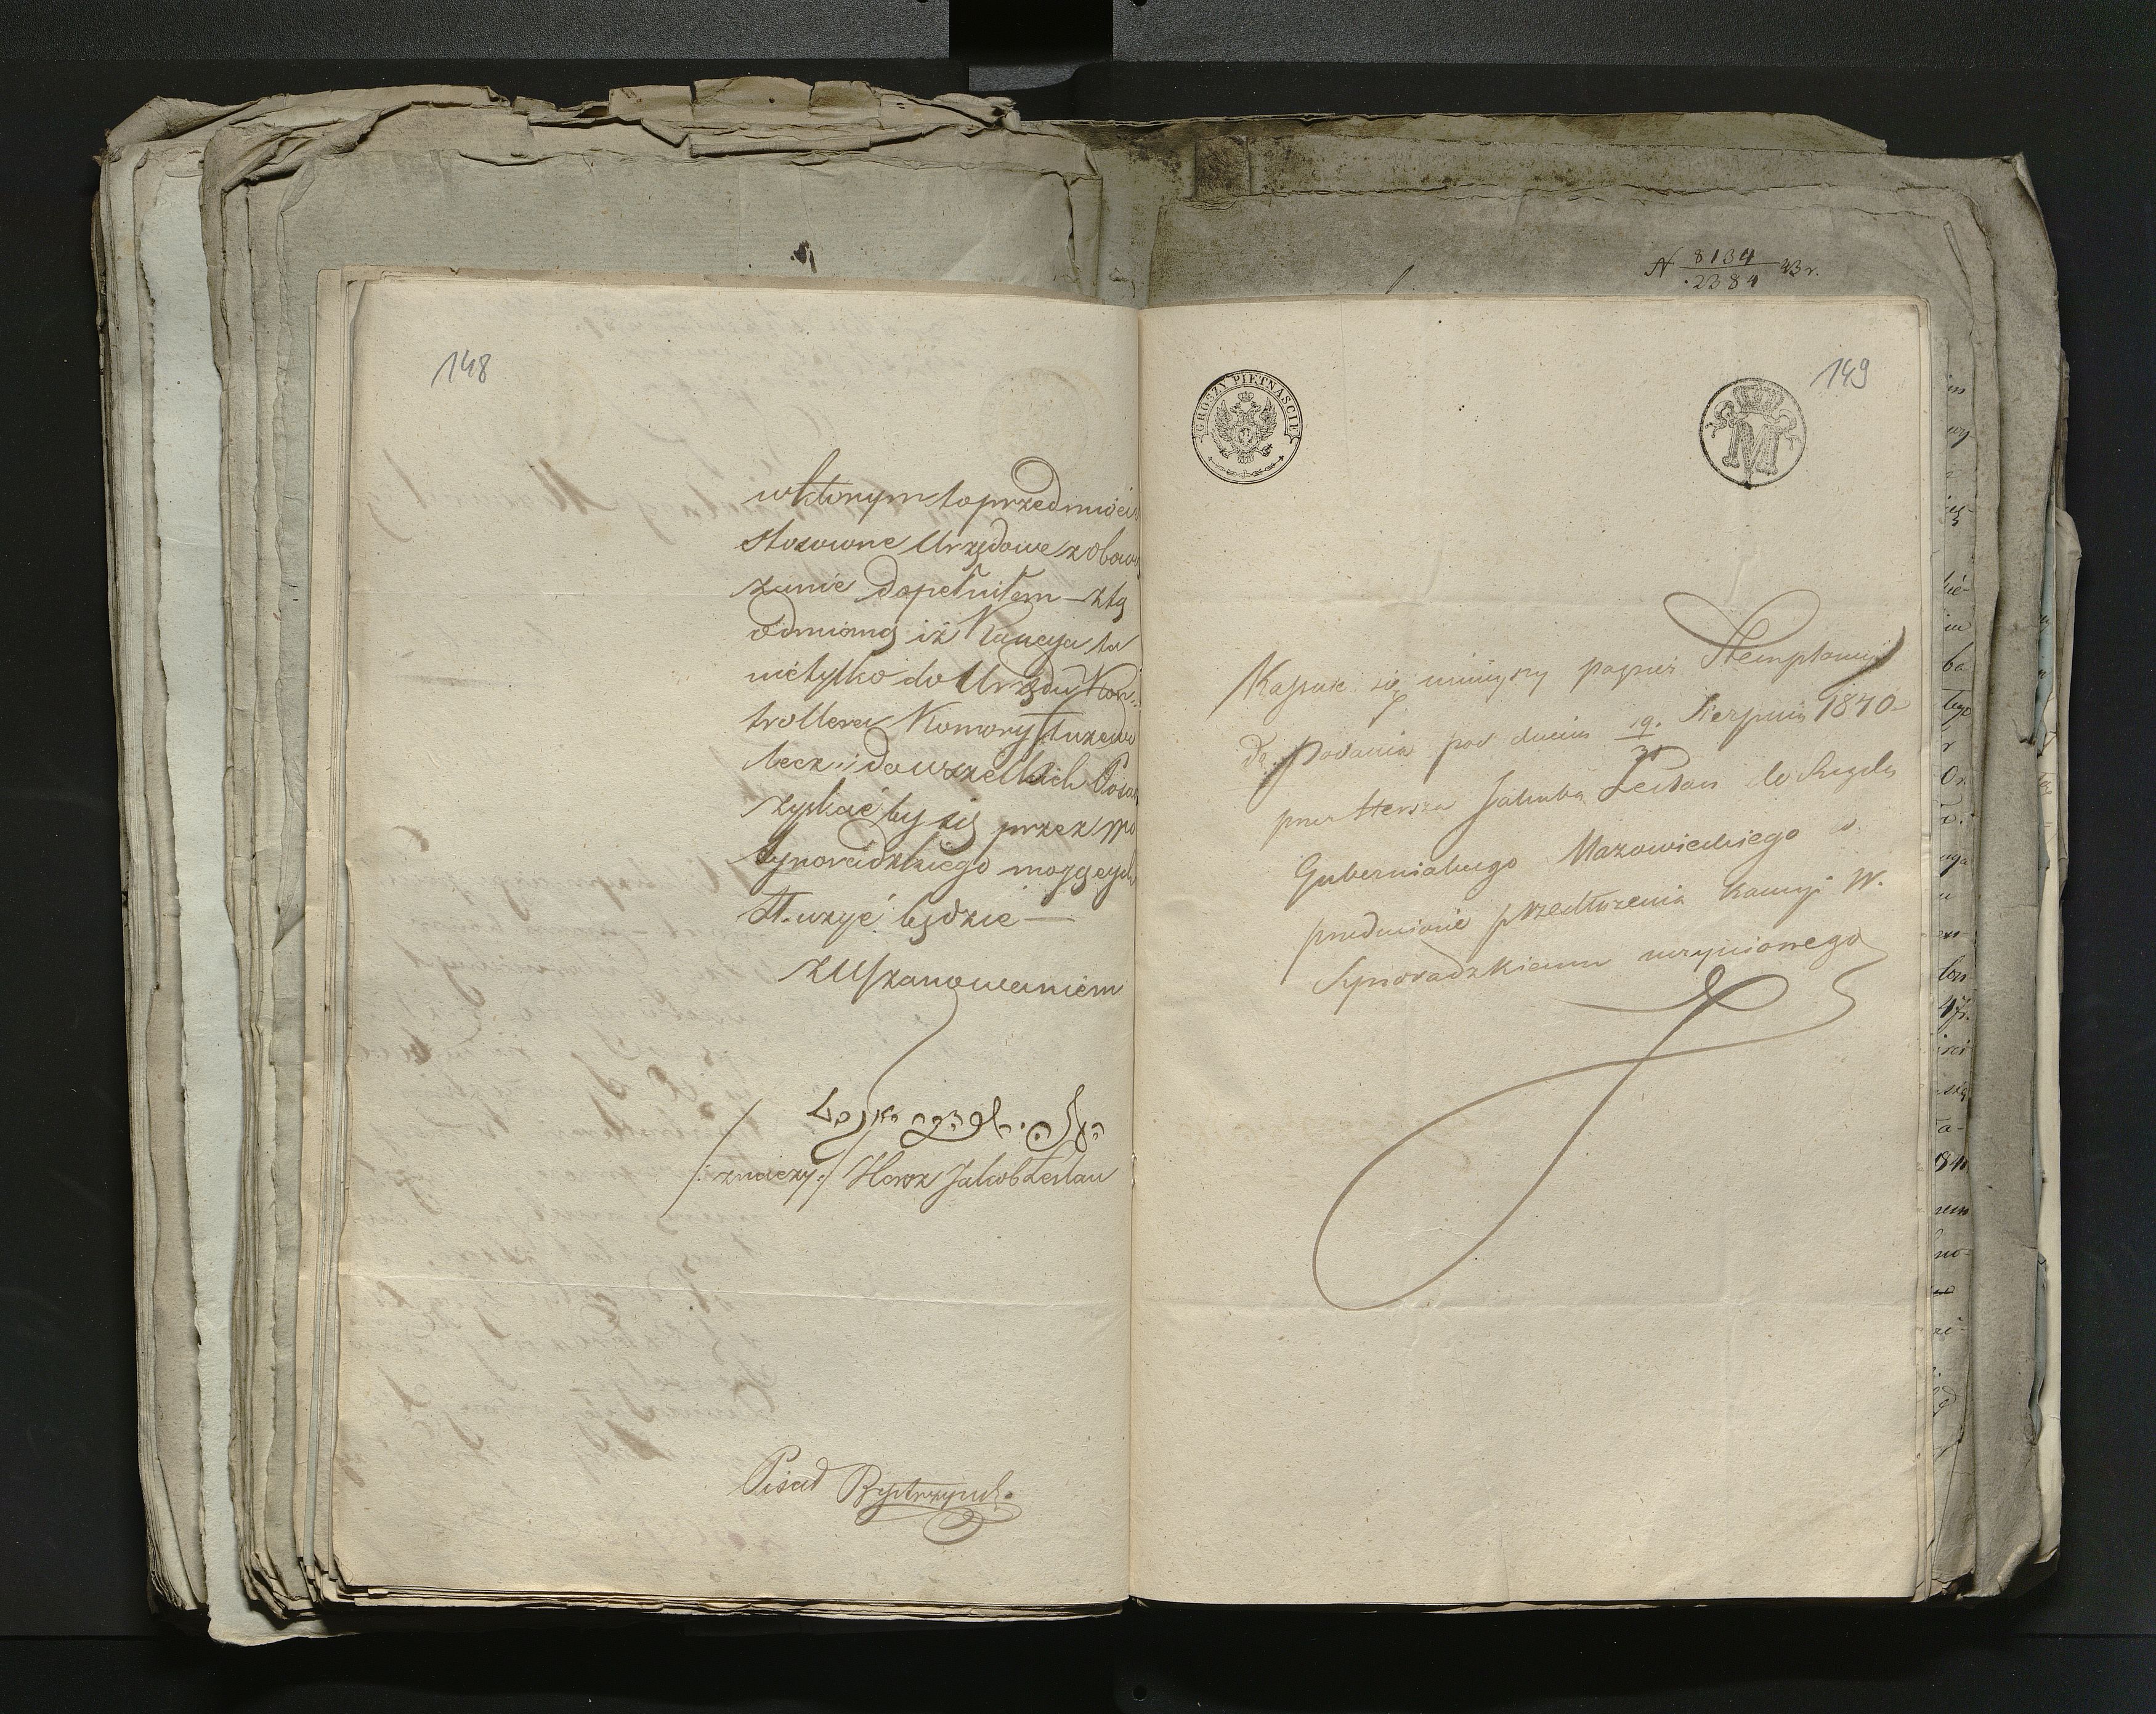 148
w którym to przedmiocie
stosowne Urzędowe zobowią
zanie dopełniłem — z tą
odmianą iż Kaucya ta
nietylko do Urzędu Kon-
trollera Komory Służewo
lecz i do wszelkich Posad
zyskać by się przez WPo
Synoradzkiego mogących
służyć będzie —
z Uszanowaniem
/: znaczy :/ Hersz Jakob Leslau
Pisał Bystrzyński
N 8134/2384 43 r.
149
GROSZY PIĘTNAŚCIE
M
Kassuie się niniejszy papier Stemplowy
do podania pod dniem 19/31 Sierpnia 1840
przez Hersza Jakuba Leslau do Rządu
Gubernialnego Mazowieckiego w
przedmiocie przedłożenia Kaucyi W.
Synoradzkiemu uczynionego